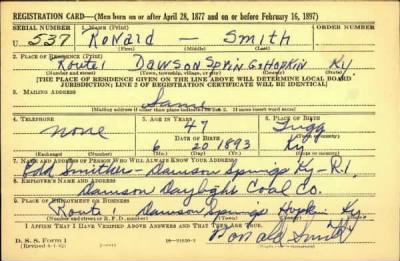 REGISTRATION CARD—(Men born on or after April 28, 1877 and on or before February 16, 1897)
SERIAL NUMBER 1. NAME (Print) ORDER NUMBER
U 537 Ronard — Smith
(First) (Middle) (Last)
2. PLACE OF RESIDENCE (Print)
Route 1 Dawson Sprin Gs Hopkin Ky.
(Number and street) (Town, township, village, or city) (County) (State)
[THE PLACE OF RESIDENCE GIVEN ON THE LINE ABOVE WILL DETERMINE LOCAL BOARD
JURISDICTION; LINE 2 OF REGISTRATION CERTIFICATE WILL BE IDENTICAL]
3. MAILING ADDRESS
Same
(Mailing address if other than place indicated on line 2. If same insert word same)
4. TELEPHONE 5. AGE IN YEARS 6. PLACE OF BIRTH
none 47 Trigg
DATE OF BIRTH
6 20 1893 Ky
(Exchange) (Number) (Mo.) (Day) (Yr.) (State or country)
7. NAME AND ADDRESS OF PERSON WHO WILL ALWAYS KNOW YOUR ADDRESS
Smither - Dawson Springs Ky - R.1.
8. EMPLOYER'S NAME AND ADDRESS
Dawson Daylight Coal Co.
9. PLACE OF EMPLOYMENT OR BUSINESS
Route 1 Dawson Springs Hopkin Ky.
(Number and street or R. F. D. number) (Town) (County) (State)
I AFFIRM THAT I HAVE VERIFIED ABOVE ANSWERS AND THAT THEY ARE TRUE.
D. S. S. Form 1
(Revised 4-1-42) (over)
Ronald Smith